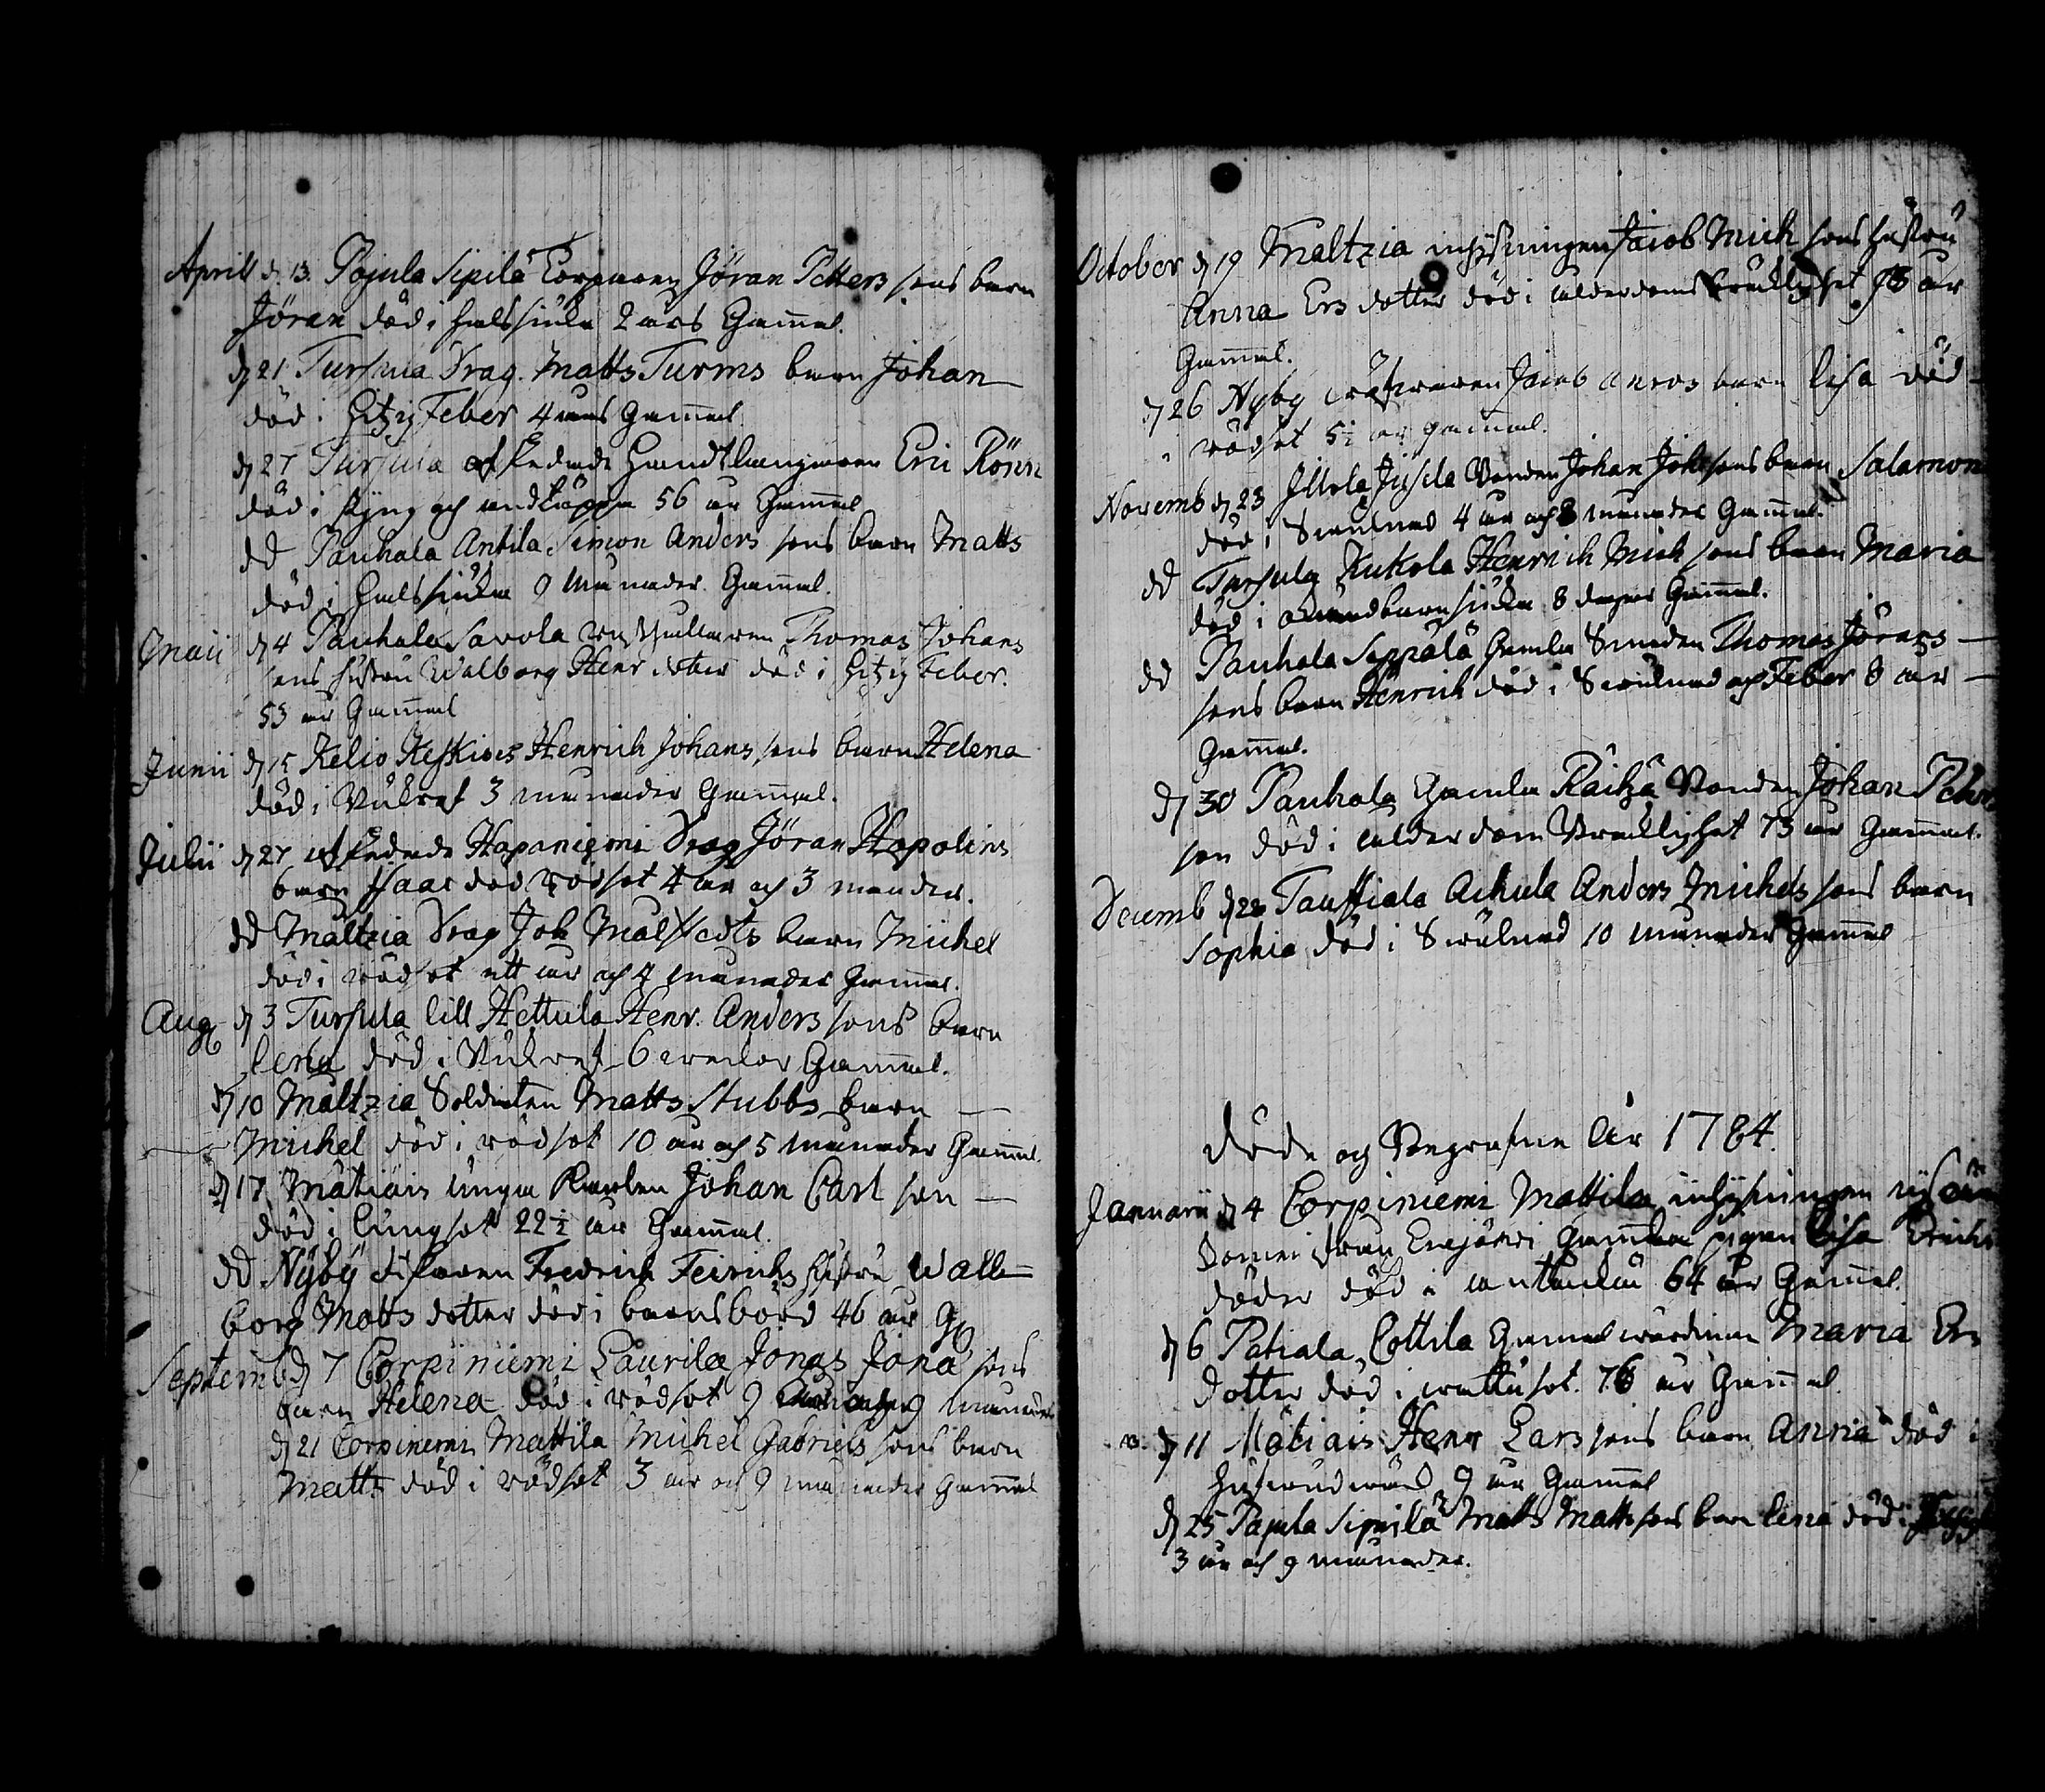 Aprill d. 13. Pojula Sipilä Corporen Jöran Petters sons barn
Jöran död i halssiuka 2 ars Gamal.
d 21 Tursula Drag. Matts Turms barn Johan
död i hitzig Feber 4 aars Gamal
d 27 Tursula afskedade Handtlangaren Eric Rönn
död i styng och andtäppa 56 år Gamal
dd Pauhala Antila Simon Anders sons barn Matts
död i halssiuka 9 månader Gamal.
Maii d 4 Pauhala Savola rusthållaren Thomas Johans
sons hustru Walborg Henr. dotter död i hitzig Feber.
53 år Gamal
Junii d 15 Kelio Keskivis Henrich Johans sons barn Helena
död i Slaget 3 månader Gamal.
Julii d 27 afskedade Hapaniemi Drag Jöran Hapolins
barn Isaac död rödsot 4 år och 3 månader.
dd Maltzia Drag Joh Malstedts barn Michel
död i rödsot ett år och 4 månader Gamal.
Aug d 3 Tursula lill Hettula Henr. Anders sons barn
lena död i Slaget 6 veckor Gamal.
d 10 Maltzia Soldaten Matts Stubbs barn
Michel död i rödsot 10 år och 5 månader Gamal.
d 17 Mätiäis unga Karlen Johan Carl son
död i lungsot 22½ år Gamal.
dd Nyby Fredrich Feirichs hustru Wall
borg Matts dotter död i barnsbörd 46 år G
Septemb d 7 Corpiniemi Laurila Jonas Jona sons
barn Helena död i rödsot 9 månader
d 21 Corpiniemi Mattila Michel Gabriels sons barn
Matts död i rödsot 3 år och 9 månader Gamal
October d 19 Maltzia inhysningen Jacob Mich sons hustru
Anna Ers dotter död i ålderdoms Bräcklighet år
Gamal.
d 26 Nyby Jacob barn lisa död
i rödsot 5½ år gammal.
Novemb d 23 Illola Jusila Bonden Johan Joh sons barn Salamon
död i Swulnad 4 år och 8 månader Gamal.
dd Tursula Kukola Henrich Mich sons barn Maria
död i barnsiuka 8 dagar Gamal.
dd Pauhala Seppälä Gamla Smeden Thomas Jörans
sons barn Henrich död i Swulnad och Feber 8 år
Gamal.
d 30 Pauhala Gamla Raitza Bonden Johan Pehr
son död i ålderdom Bräcklighet 73 år Gamal.
Decemb d 28 Tauffiala Ackula Anders Michels sons barn
Sophia död i Swulnad 10 månader Gamal
Döde och Begrafne År 1784.
Januarii d 4 Corpiniemi Mattila inhysningen
från Enejärvi Gamla pigan lisa Erichs
dotter död i 64 år Gamal.
d 6 Patiala Cottila Gamal Maria Ers
dotter död i wattusot. 76 år Gamal.
d 11 Mätiäis Henr Lars sons barn Anna död i
9 år Gamal
d 25 Pajula Sipilä Matts Matts sons barn lena död i
3 år och 9 månader.